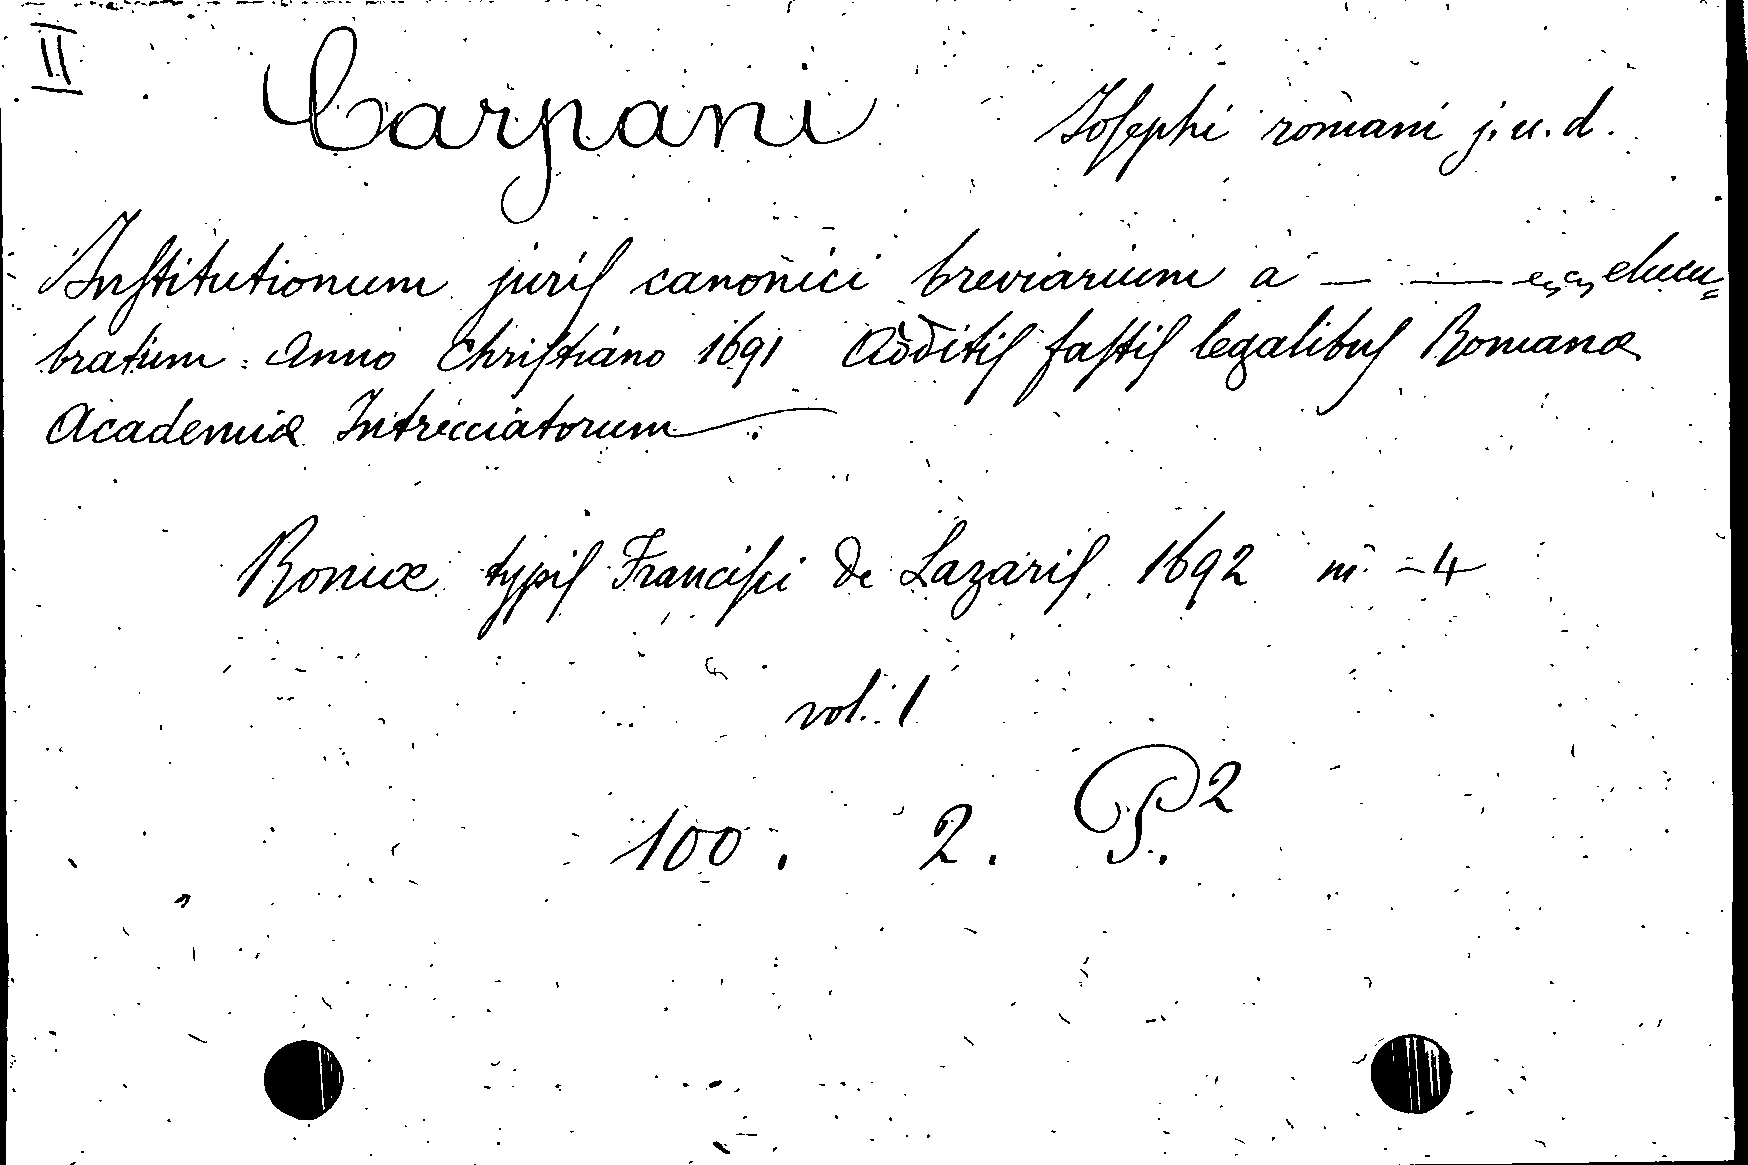 II
Carpani Josephi romani j. u. d.
Institutionum juris canonici breviarium a — — elucu=
bratum. Anno Christiano 1691 Additis fastis legalibus Romanæ
Academiæ Intrecciatorum.
Romæ typis Francisci de Lazaris 1692 in - 4
vol. 1
100. 2. P.²